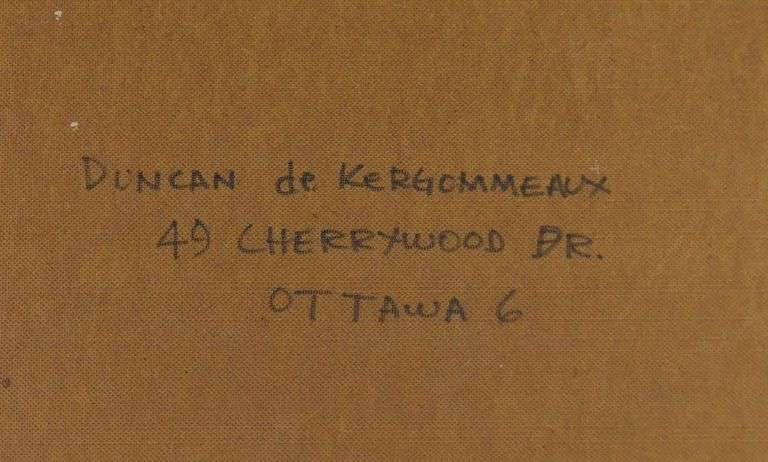 DUNCAN de KERGOMMEAUX
49 CHERRYWOOD DR.
OTTAWA 6